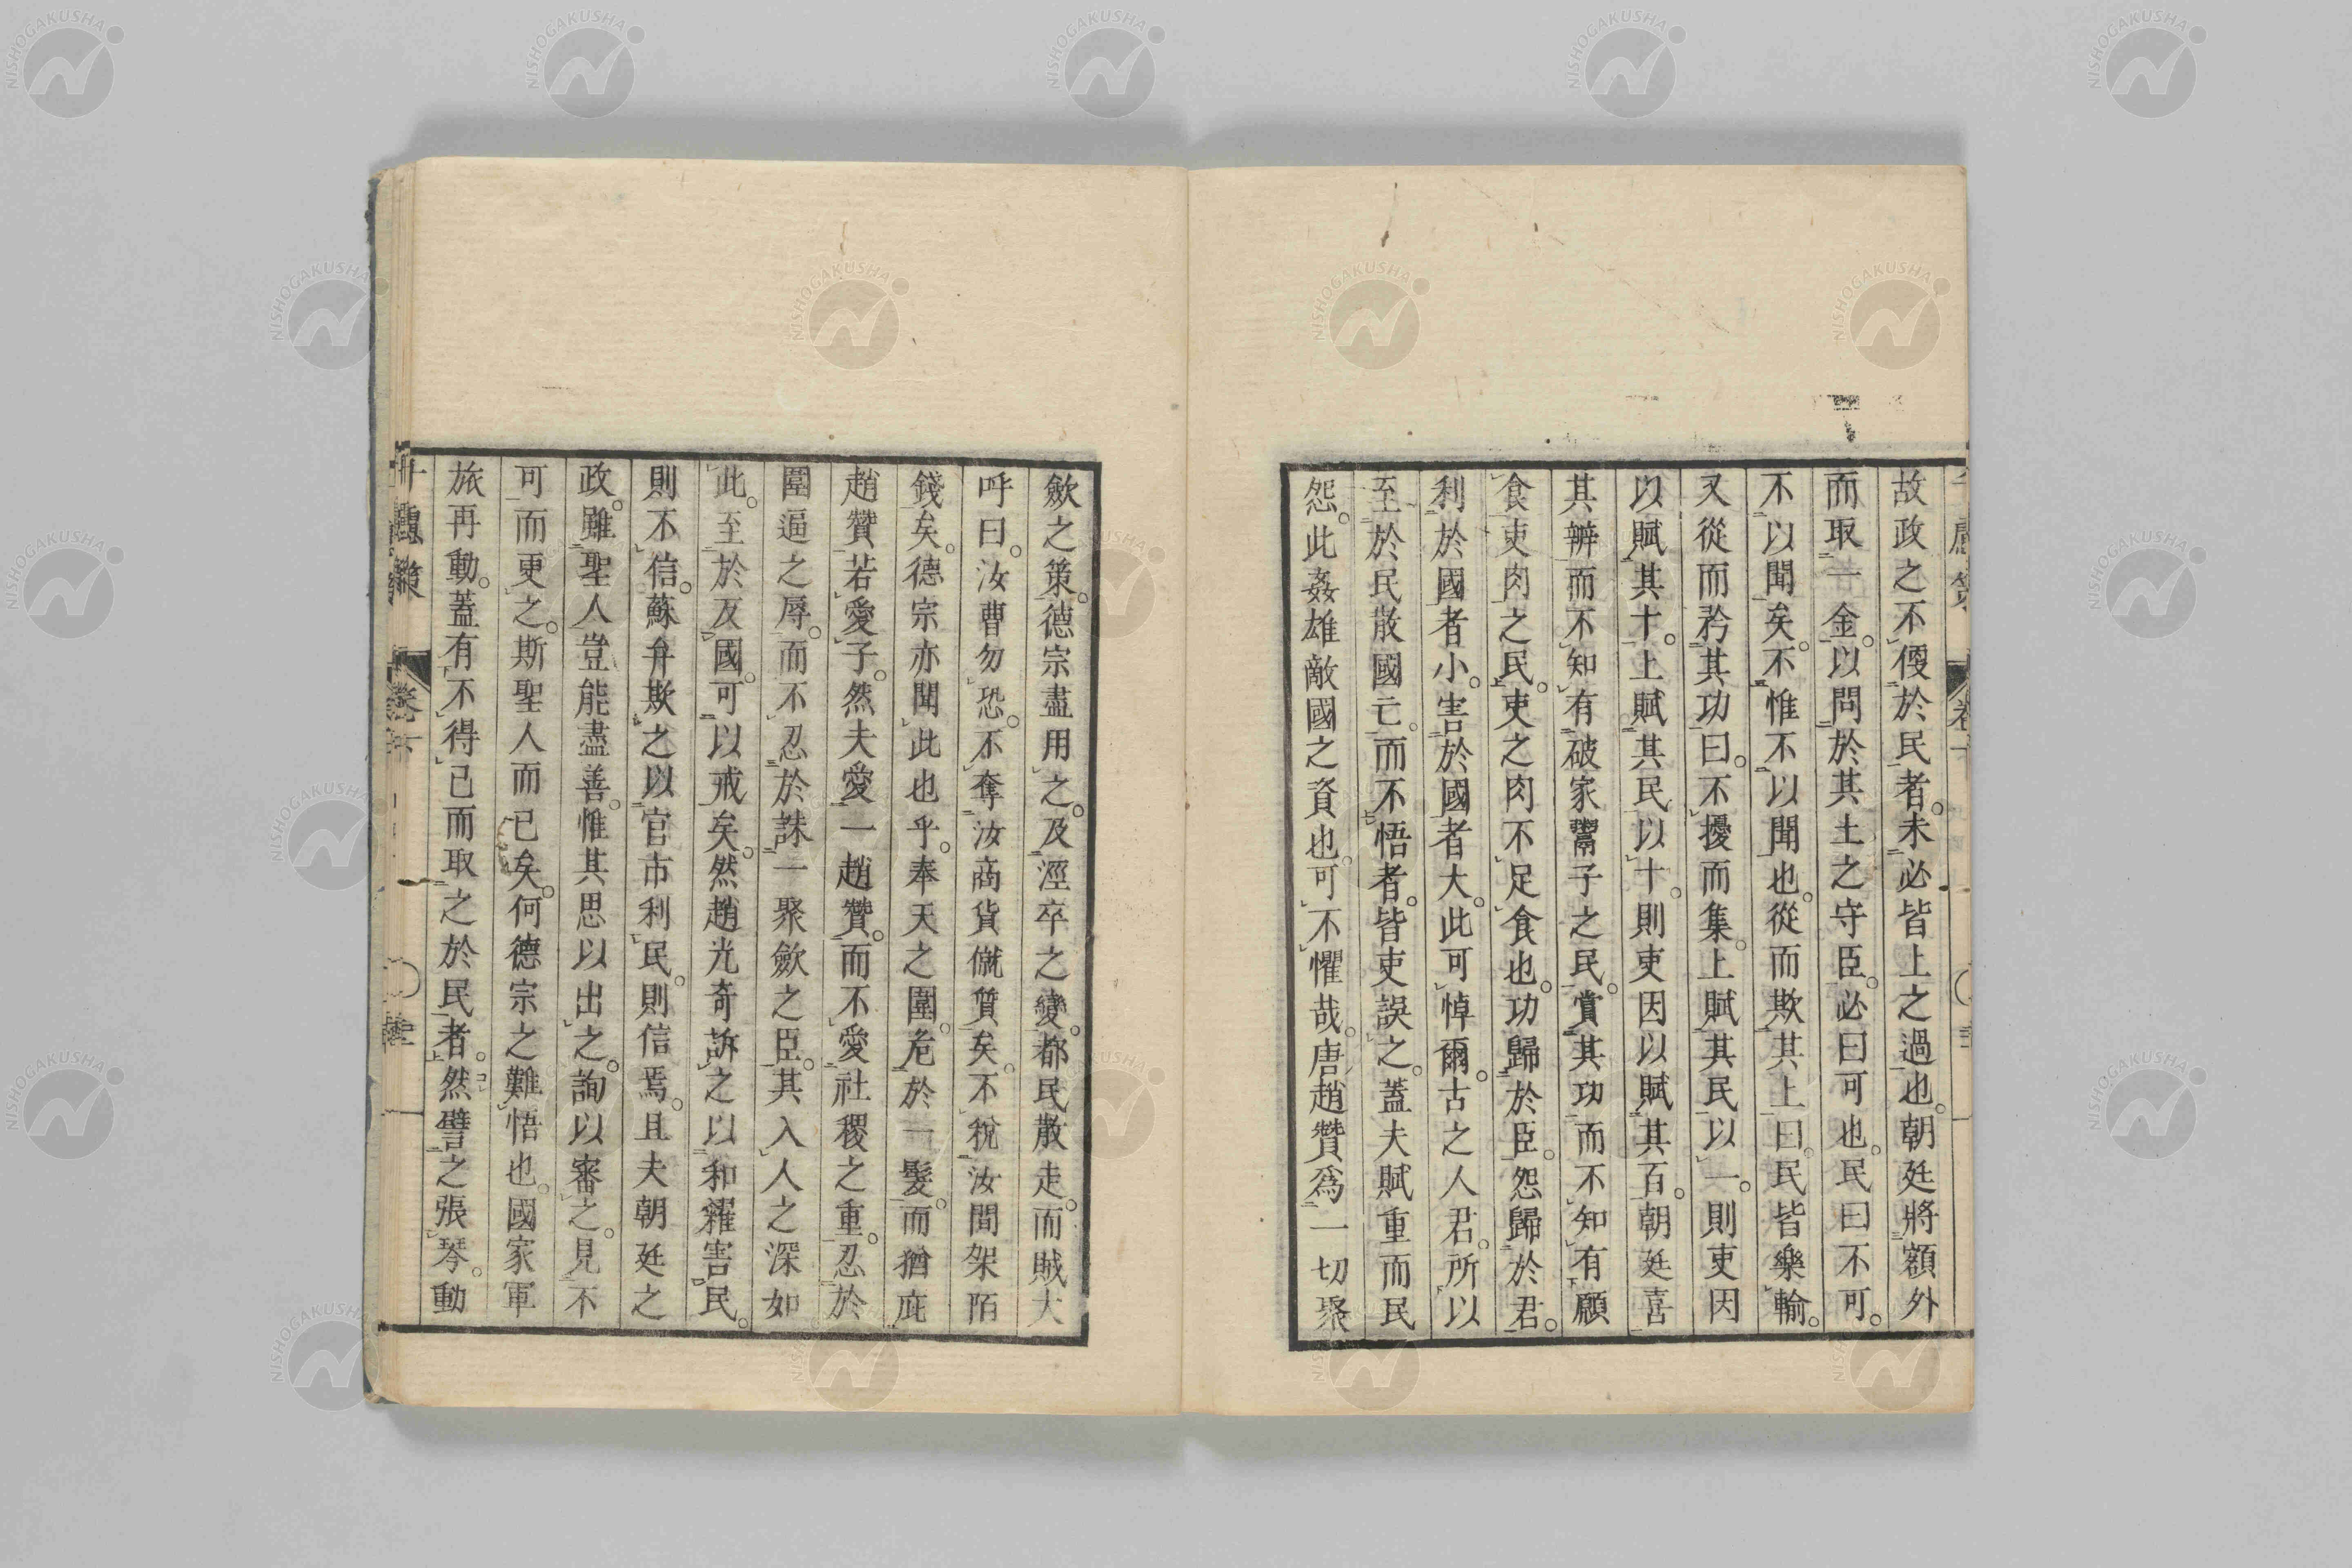 故政之不優於民者。未必皆上之過也。朝廷將額外
而取一金。以問於其土之守臣。必曰可也。民曰不可。
不以聞矣。不惟不以聞也。從而欺其上曰。民皆樂輸。
又從而矜其功曰。不擾而集。上賦其民以一。則吏因
以賦其十。上賦其民以十。則吏因以賦其百。朝廷喜
其辨而不知有破家鬻子之民。賞其功而不知有願
食吏肉之民。吏之肉不足食也。功歸於臣。怨歸於君。
利於國者小。害於國者大。此可悼爾。古之人君。所以
至於民散國亡。而不悟者。皆吏誤之。蓋夫賦重而民
怨。此姦雄敵國之資也。可不懼哉。唐趙贊爲一切聚
歛之策。德宗盡用之。及涇卒之變。都民散走。而賊大
呼曰。汝曹勿恐。不奪汝商貨僦質矣。不稅汝間架陌
錢矣。德宗亦聞此也乎。奉天之圍。危於一髮。而猶庇
趙贊若愛子。然夫愛一趙贊。而不愛社稷之重。忍於
圍逼之辱。而不忍於誅一聚歛之臣。其入人之深如
此。至於反國。可以戒矣。然趙光奇訴之以和糴害民。
則不信。蘇弁欺之以官市利民。則信焉。且夫朝廷之
政。雖聖人豈能盡善。惟其思以出之。詢以審之。見不
可而更之。斯聖人而已矣。何德宗之難悟也。國家軍
旅再動。蓋有不得已而取之於民者。然譬之張琴。動
千慮策 卷下
NISHOGAKUSHA